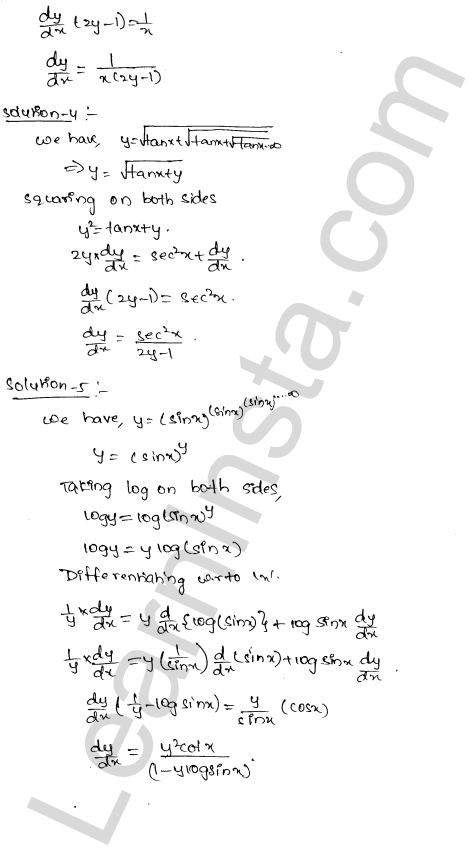 dy/dx (2y-1) = 1/x
dy/dx = 1/x(2y-1)
Solution-4 :-
we have, y=√tanx+√tanx+√tanx...∞
⇒ y = √tanx+y
squaring on both sides
y²=tanx+y.
2y×dy/dx = sec²x+dy/dx.
dy/dx (2y-1) = sec²x.
dy/dx = sec²x/2y-1.
Solution-5 :-
we have, y=(sinx)^(sinx)^(sinx)^....∞
y = (sinx)^y
Taking log on both sides,
logy=log(sinx)^y
logy=y log(sinx)
Differentiating w.r.to 'x'.
1/y×dy/dx = y d/dx{log(sinx)}+log sinx dy/dx
1/y×dy/dx =y(1/sinx) d/dx(sinx)+log sinx dy/dx.
dy/dx(1/y-log sinx) = y/sinx (cosx)
dy/dx = y²cotx/(1-ylogsinx).
LearnInsta.com